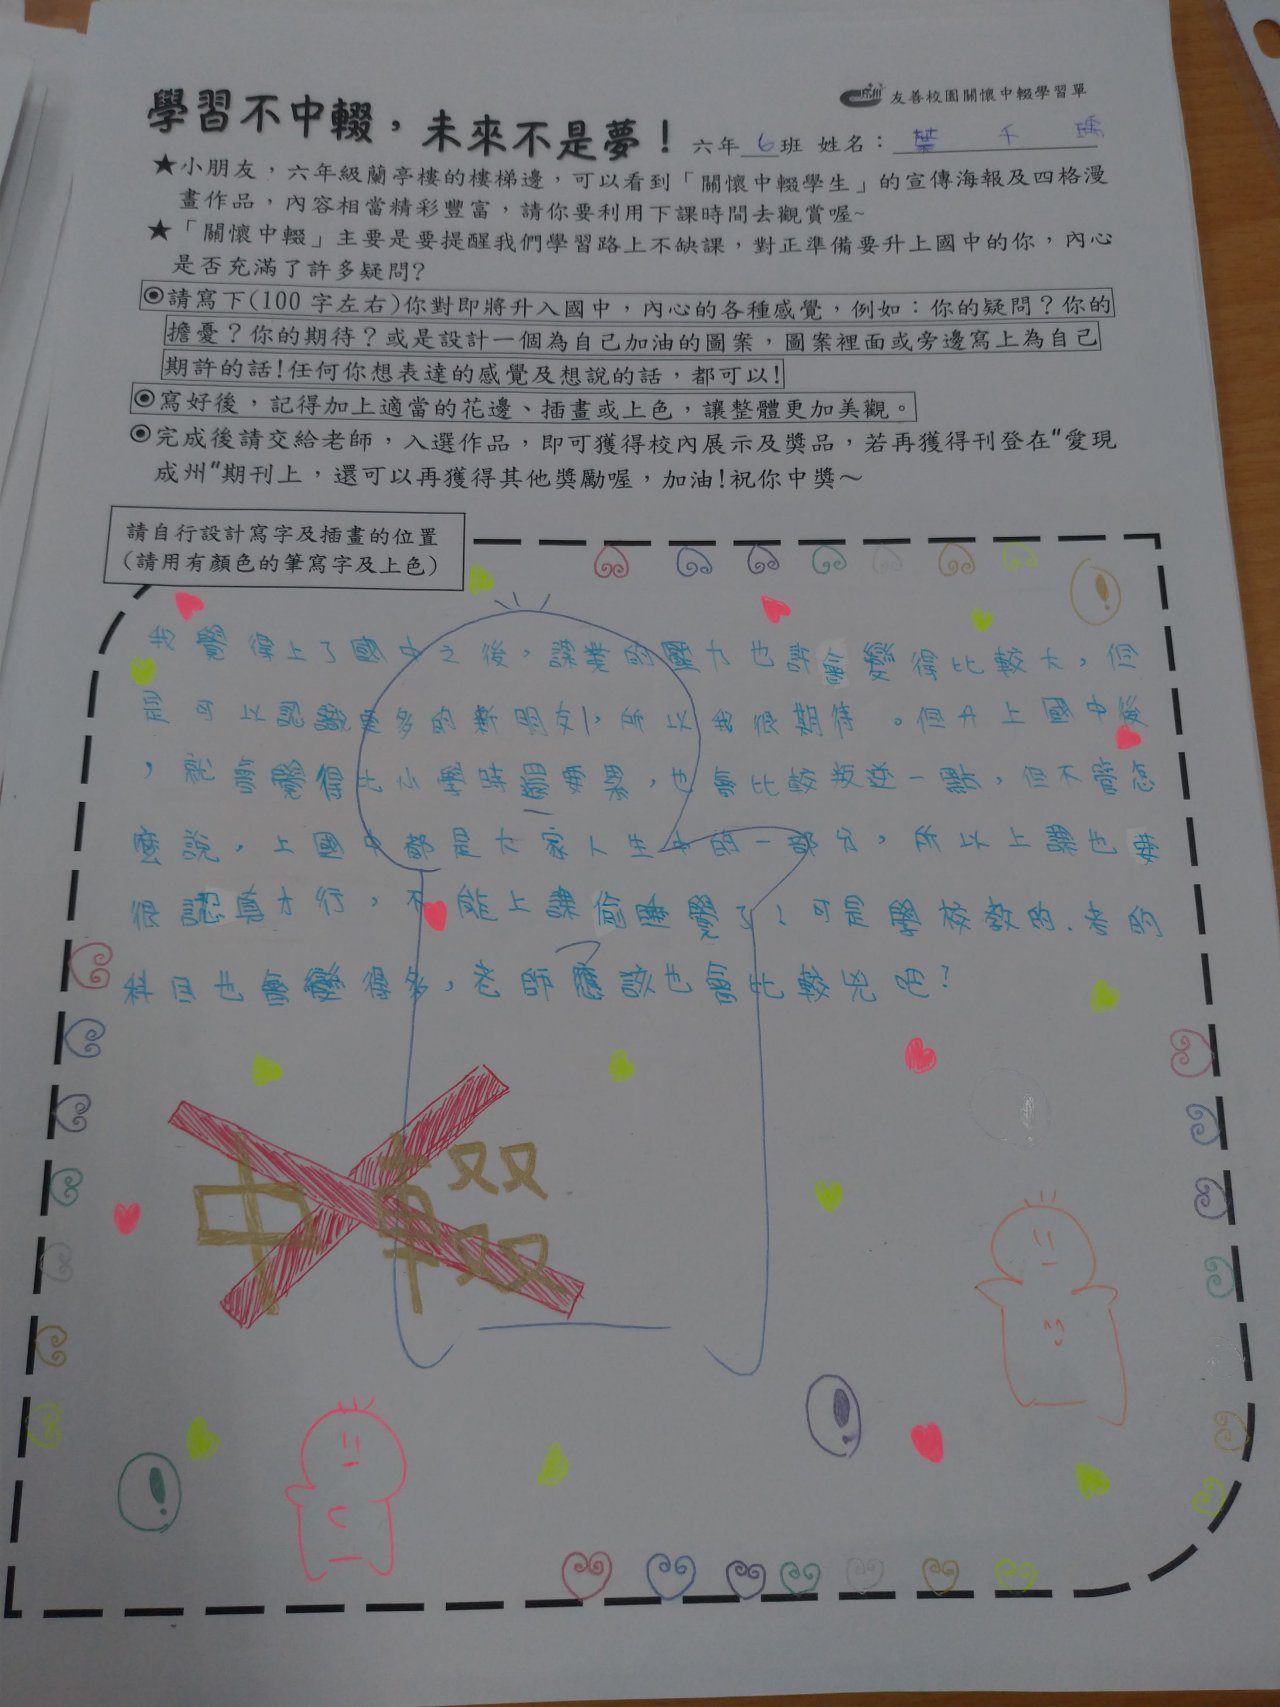 友善校園關懷中輟學習單
學習不中輟，未來不是夢！ 六年 6 班 姓名：葉千瑀
★小朋友，六年級蘭亭樓的樓梯邊，可以看到「關懷中輟學生」的宣傳海報及四格漫
畫作品，內容相當精彩豐富，請你要利用下課時間去觀賞喔~
★「關懷中輟」主要是要提醒我們學習路上不缺課，對正準備要升上國中的你，內心
是否充滿了許多疑問?
◉請寫下(100 字左右)你對即將升入國中，內心的各種感覺，例如：你的疑問？你的
擔憂？你的期待？或是設計一個為自己加油的圖案，圖案裡面或旁邊寫上為自己
期許的話!任何你想表達的感覺及想說的話，都可以!
◉寫好後，記得加上適當的花邊、插畫或上色，讓整體更加美觀。
◉完成後請交給老師，入選作品，即可獲得校內展示及獎品，若再獲得刊登在"愛現
成州"期刊上，還可以再獲得其他獎勵喔，加油!祝你中獎～
請自行設計寫字及插畫的位置
(請用有顏色的筆寫字及上色)
我覺得上了國中之後，課業的壓力也許會變得比較大，但
是可以認識更多的新朋友，所以我很期待。但升上國中後
，就會覺得比小學時還要累，也會比較叛逆一點，但不管怎
麼說，上國中都是大家人生中的一部分，所以上課也要
很認真才行，不能上課偷睡覺了！可是學校教的、考的
科目也會變得多，老師應該也會比較兇吧？
中輟